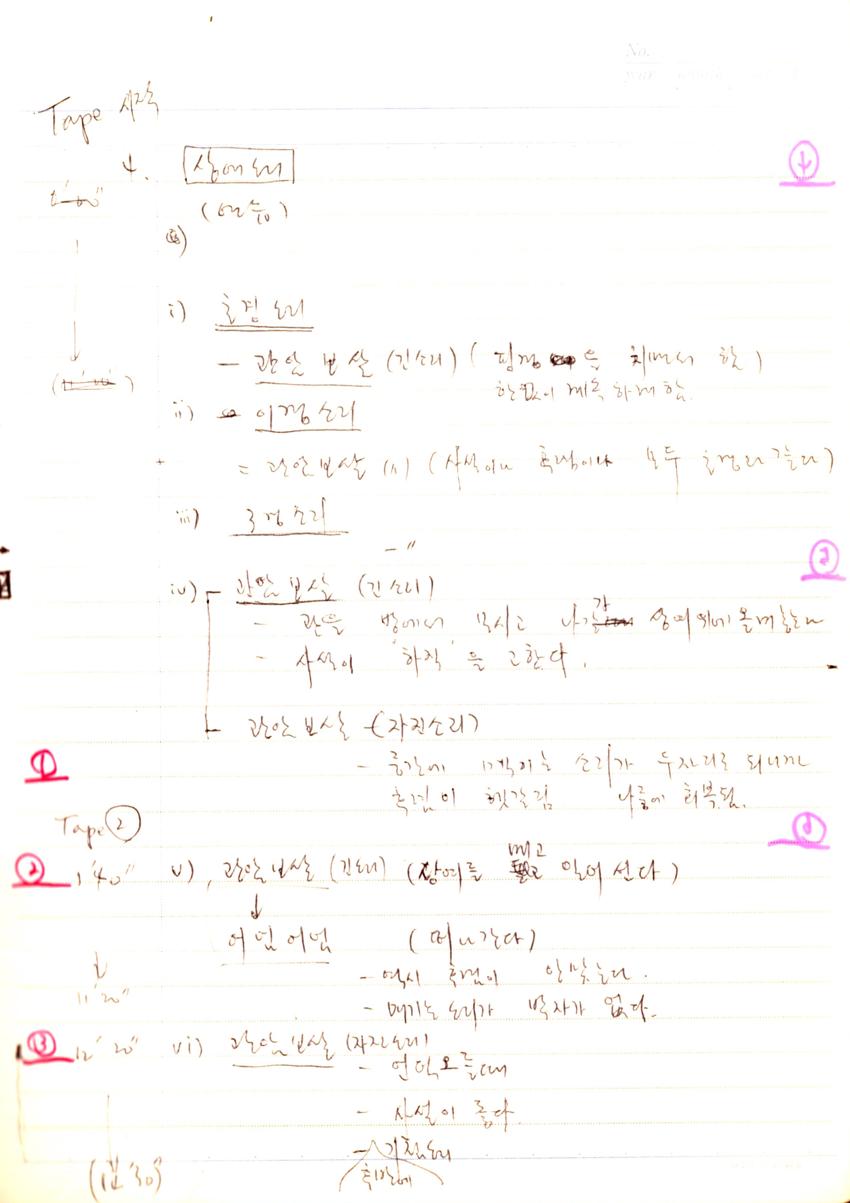 No.
Tape 시작
4. 상여소리
(연습)
i) 초경소리
— 관암보살 (긴소리) (핑경 을 치면서 함)
한없이 계속 하며 함.
ii) 이경소리
= 관암보살 (〃) (사설이나 후렴이나 모두 초경과 같다)
iii) 3경소리
— 〃
iv) 관암보살 (긴소리)
- 관을 방에서 모시고 나가 상여위에 올려놓는
- 사설이 '하직'을 고한다.
관암보살 (자진소리)
- 중간에 매기는 소리가 두자리로 되니까
후렴이 헷갈림 나중에 회복됨.
①
Tape ②
② 1'40" v) 관암보살 (긴소리) (상여를 메고 일어선다)
↓
어넘어넘 (떠나간다)
↓
11'20"
- 역시 후렴이 안맞는다.
- 매기는소리가 박자가 없다.
③ 12'20" vi) 관암보살 (자진소리)
- 언덕오를때
- 사설이 좋다.